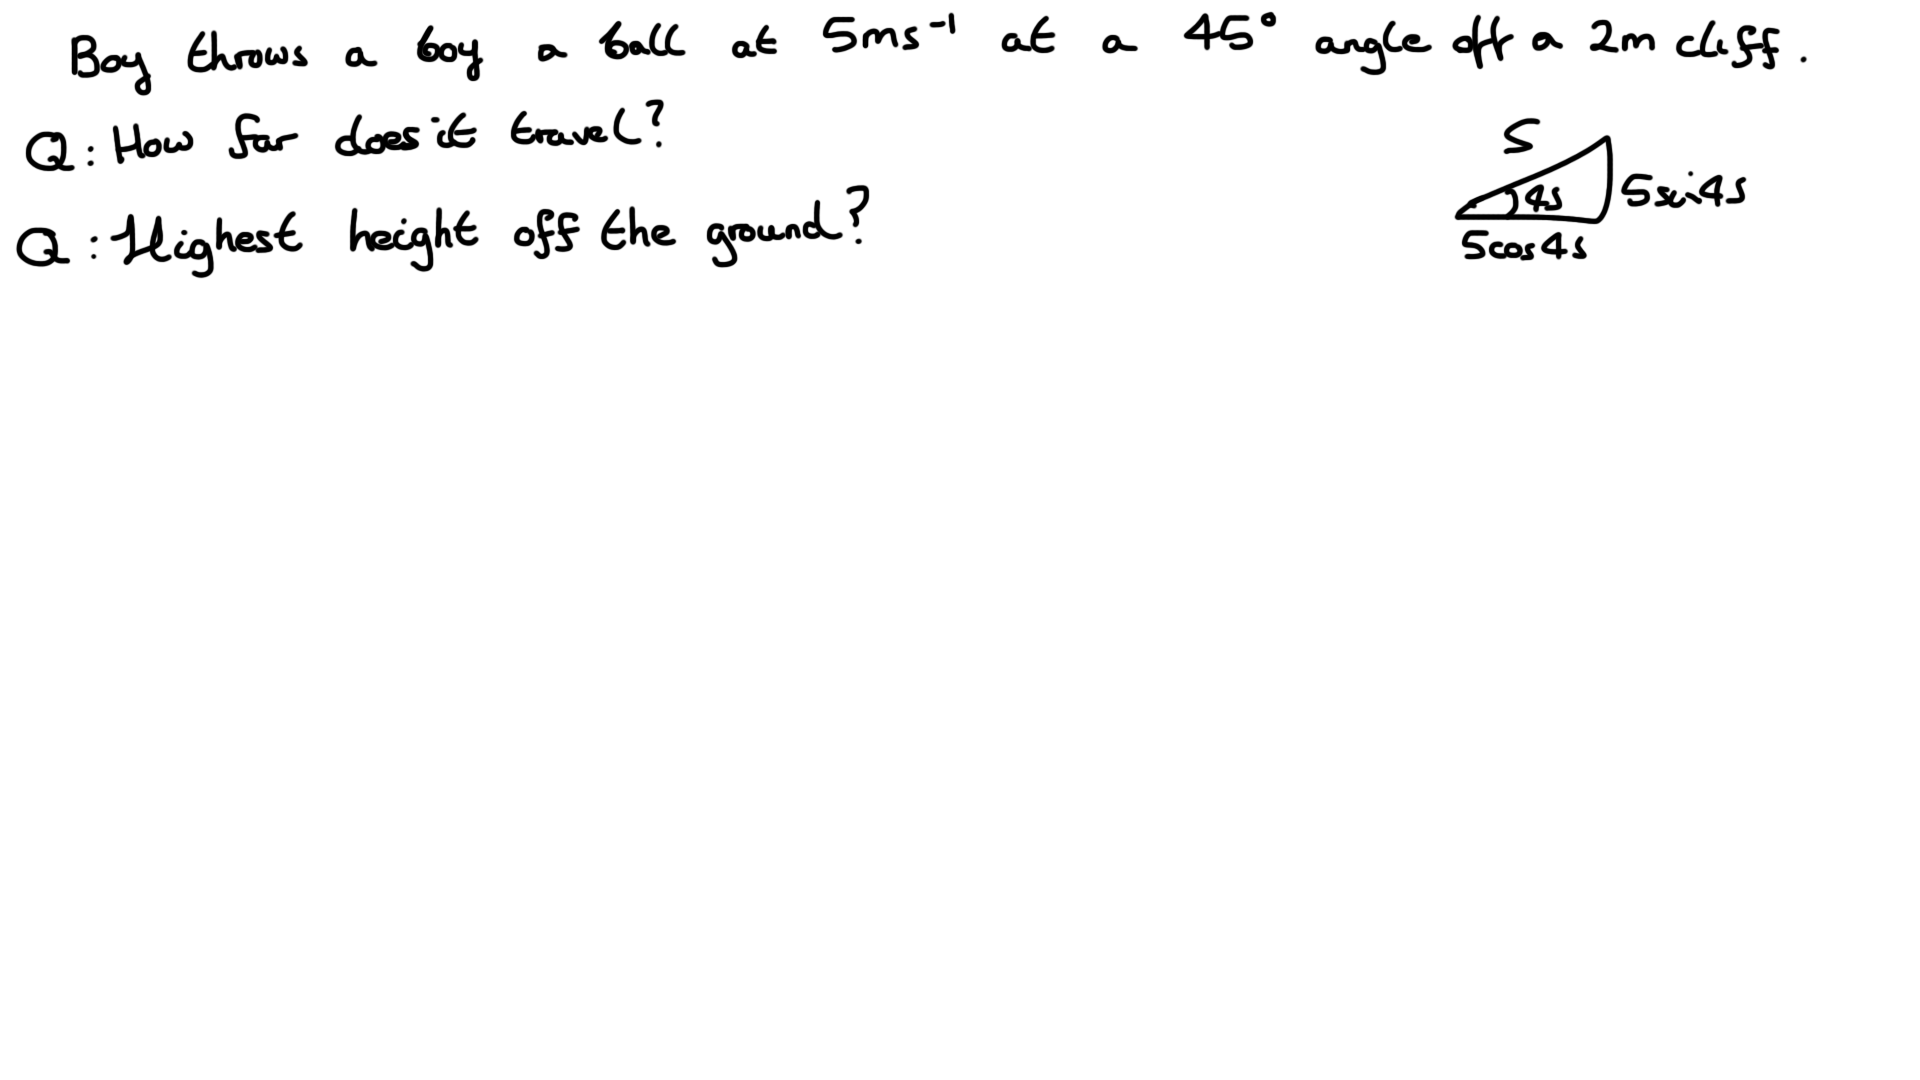 Boy throws a boy a ball at 5ms⁻¹ at a 45° angle off a 2m cliff.
Q: How far does it travel?
Q: Highest height off the ground?
5
45
5sin45
5cos45